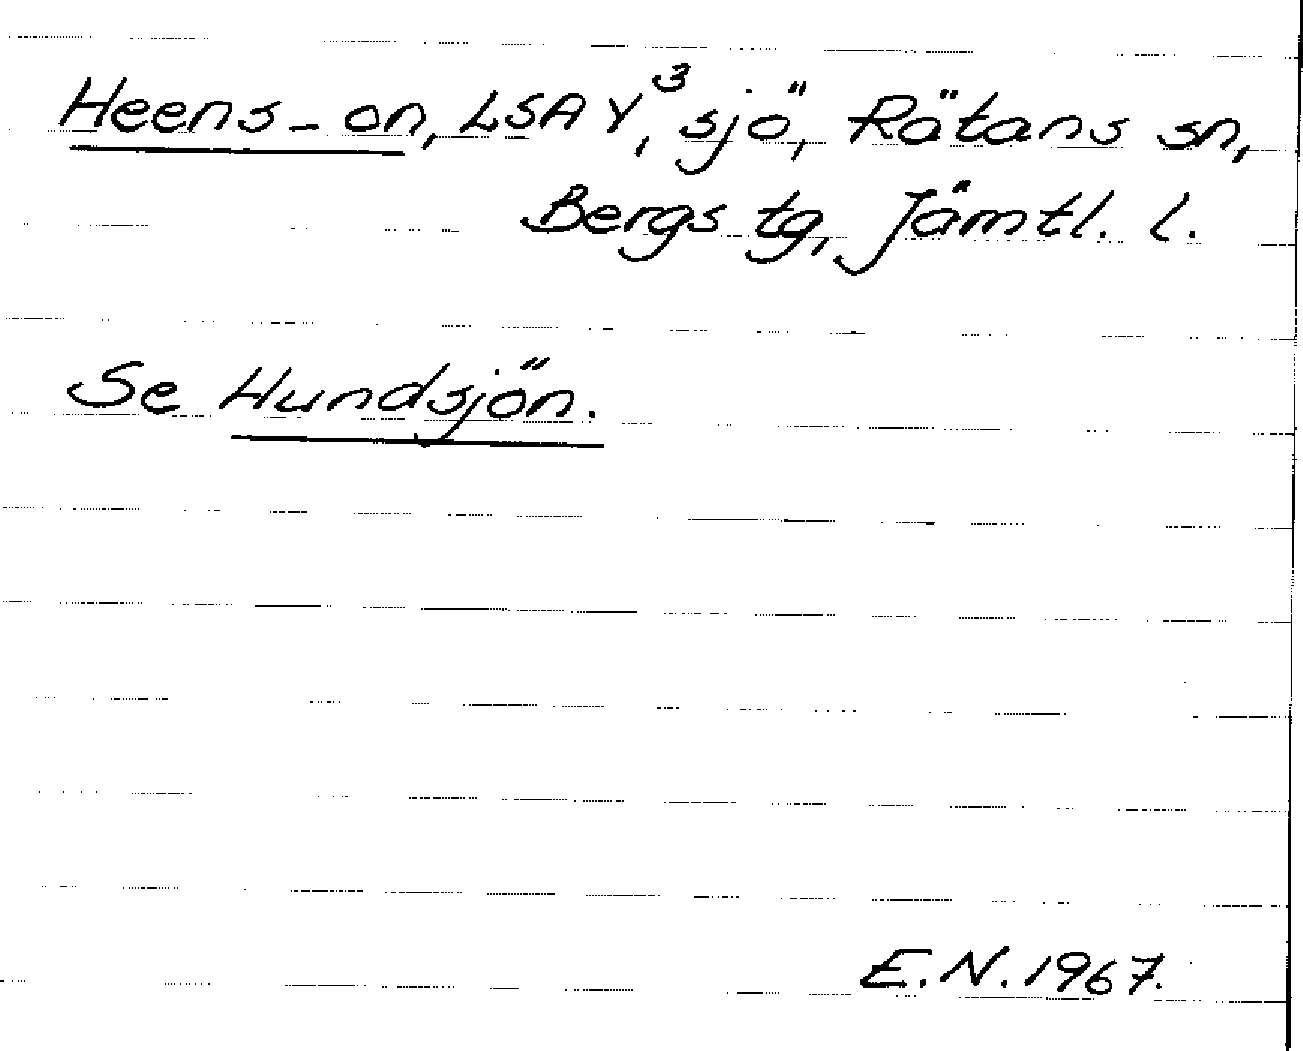 Heens-on, LSA Y³, sjö, Rätans sn,
Bergs tg, Jämtl. l.
Se Hundsjön.
E.N. 1967.